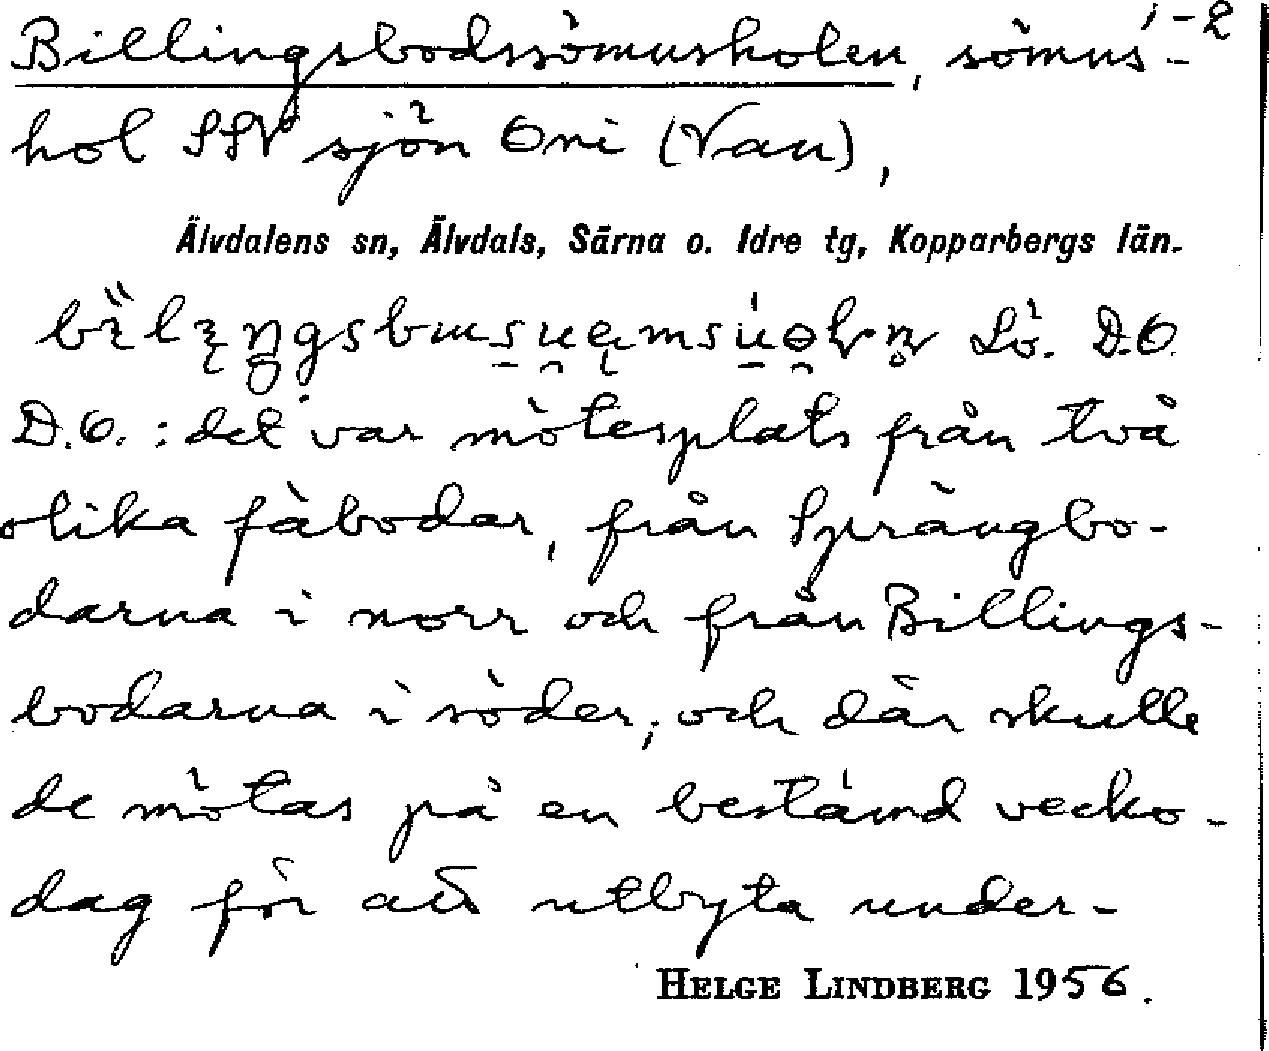 1-2
Billingsbodssömusholen, sömus-
hol SSV sjön Oni (Van),
Älvdalens sn, Älvdals, Särna o. Idre tg, Kopparbergs län.
Lö. D.O.
D.O. : det var mötesplats från två
olika fäbodar, från Sprängbo-
darna i norr och från Billings-
bodarna i söder, och där skulle
de mötas på en bestämd vecko-
dag för att utbyta under-
HELGE LINDBERG 1956.